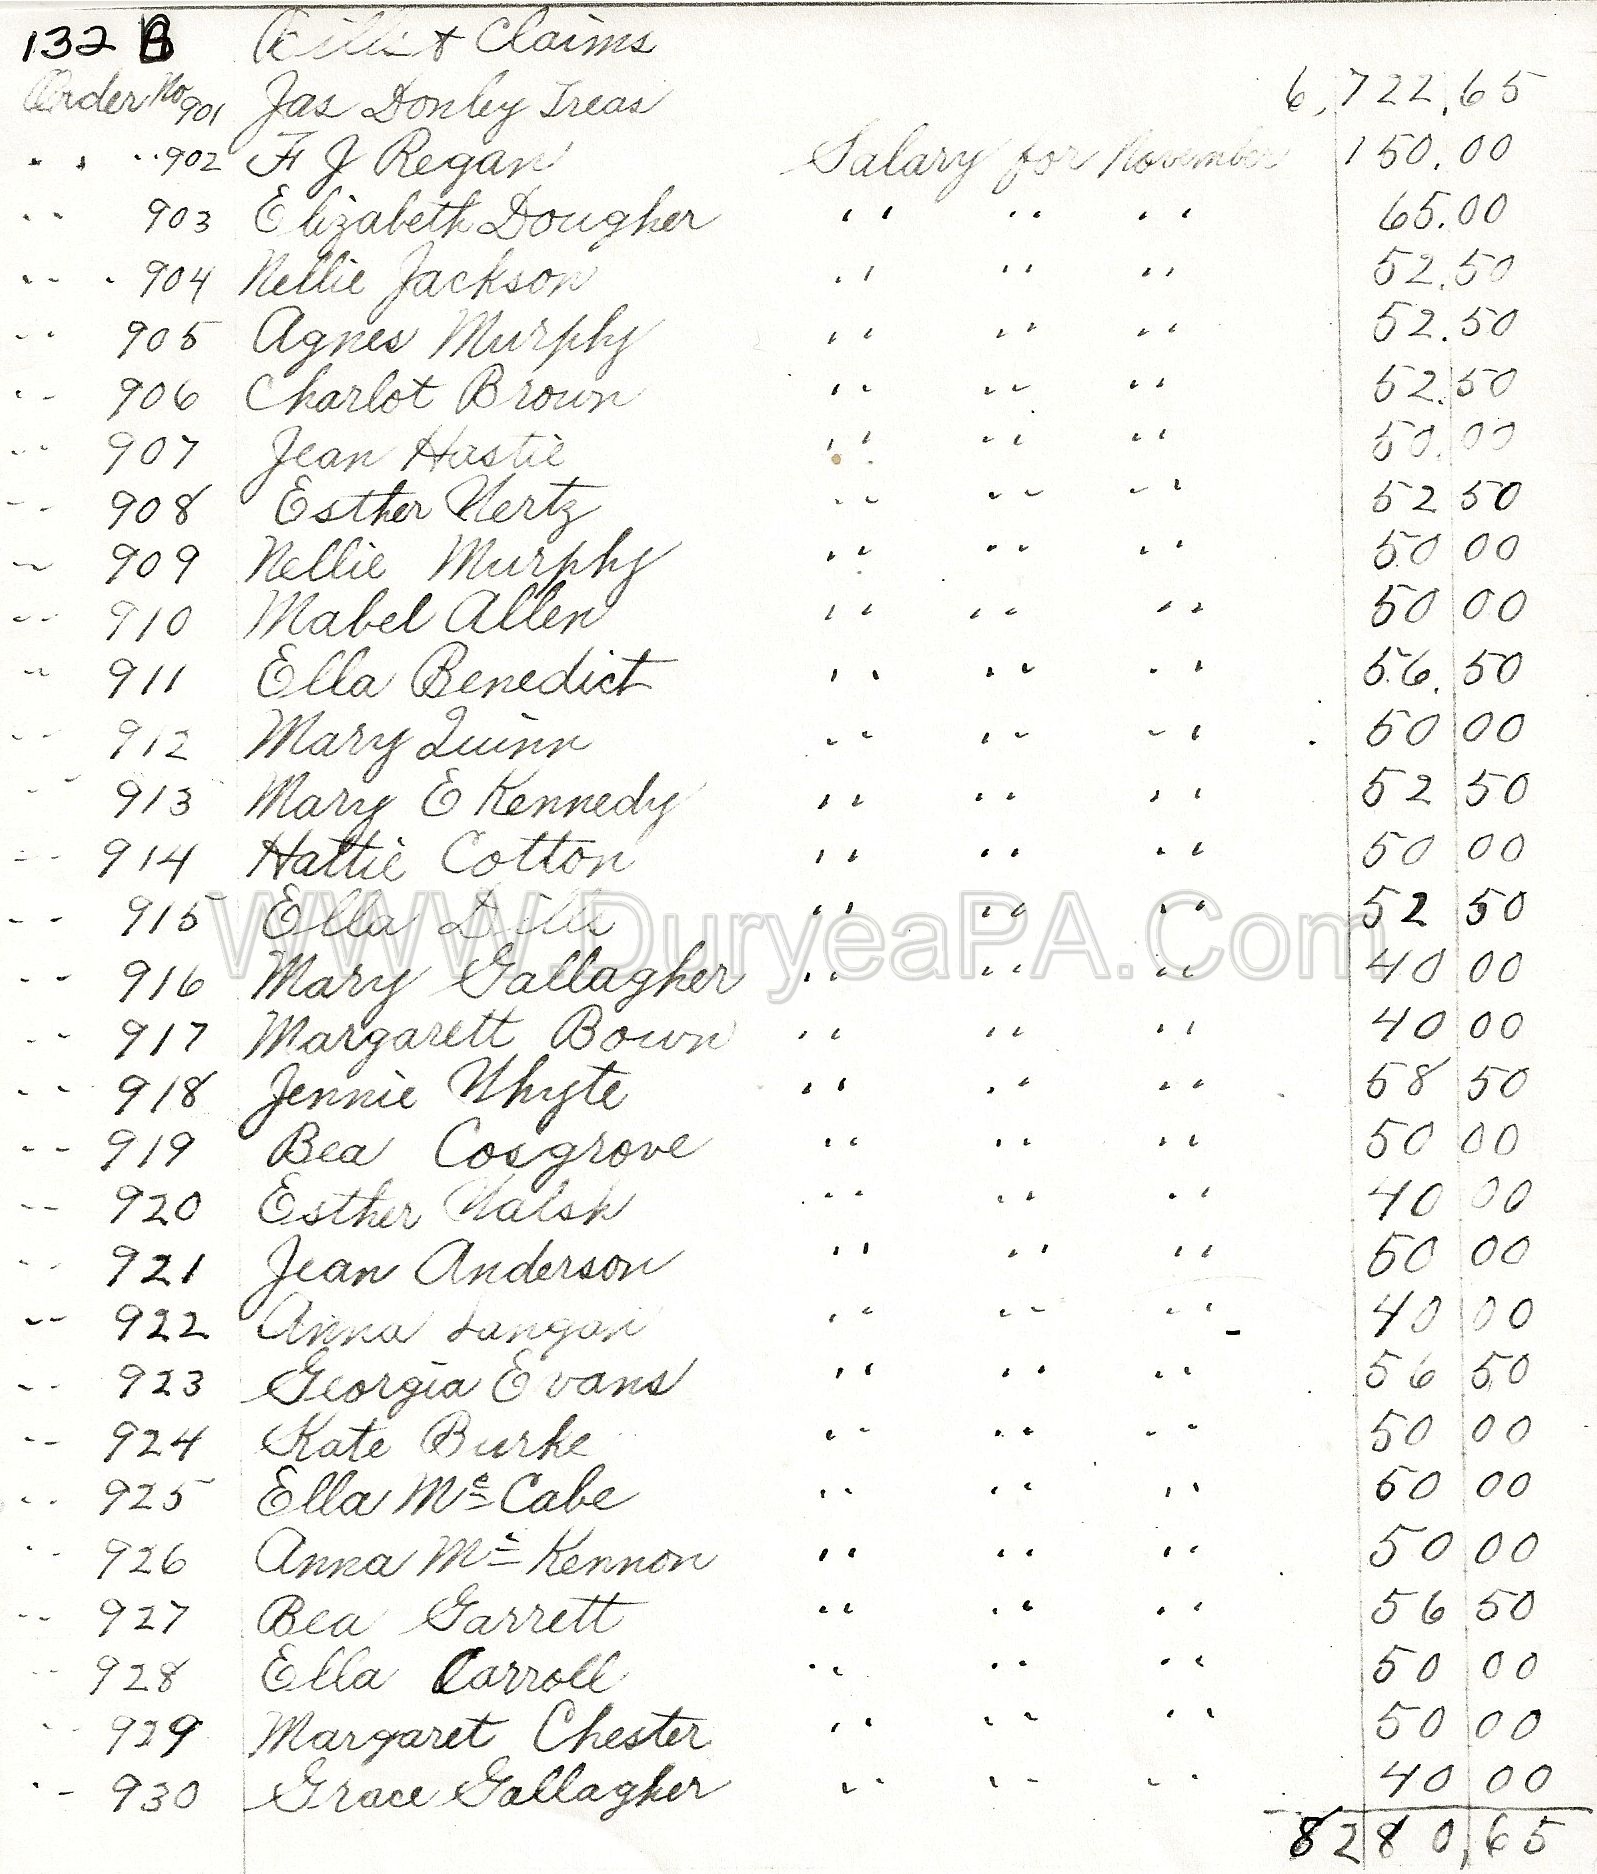 132 B Bills & Claims
Order No 901 Jas Donley Treas 6,722.65
" " 902 F J Regan Salary for November 150.00
" " 903 Elizabeth Dougher " " " 65.00
" " 904 Nellie Jackson " " " 52.50
" " 905 Agnes Murphy " " " 52.50
" " 906 Charlot Brown " " " 52.50
" " 907 Jean Hastie " " " 50.00
" " 908 Esther Wertz " " " 52 50
" " 909 Nellie Murphy " " " 50 00
" " 910 Mabel Allen " " " 50 00
" " 911 Ella Benedict " " " 56.50
" " 912 Mary Quinn " " " 50 00
" " 913 Mary E Kennedy " " " 52 50
" " 914 Hattie Cotton " " " 50 00
" " 915 Ella Dills " " " 52 50
WWW.DuryeaPA.Com
" " 916 Mary Gallagher " " " 40 00
" " 917 Margarett Bown " " " 40 00
" " 918 Jennie Whyte " " " 58 50
" " 919 Bea Cosgrove " " " 50 00
" " 920 Esther Walsh " " " 40 00
" " 921 Jean Anderson " " " 50 00
" " 922 Anna Langan " " " 40 00
" " 923 Georgia Evans " " " 56 50
" " 924 Kate Burke " " " 50 00
" " 925 Ella McCabe " " " 50 00
" " 926 Anna McKennon " " " 50 00
" " 927 Bea Garrett " " " 56 50
" " 928 Ella Carroll " " " 50 00
" " 929 Margaret Chester " " " 50 00
" " 930 Grace Gallagher " " " 40 00
8280.65